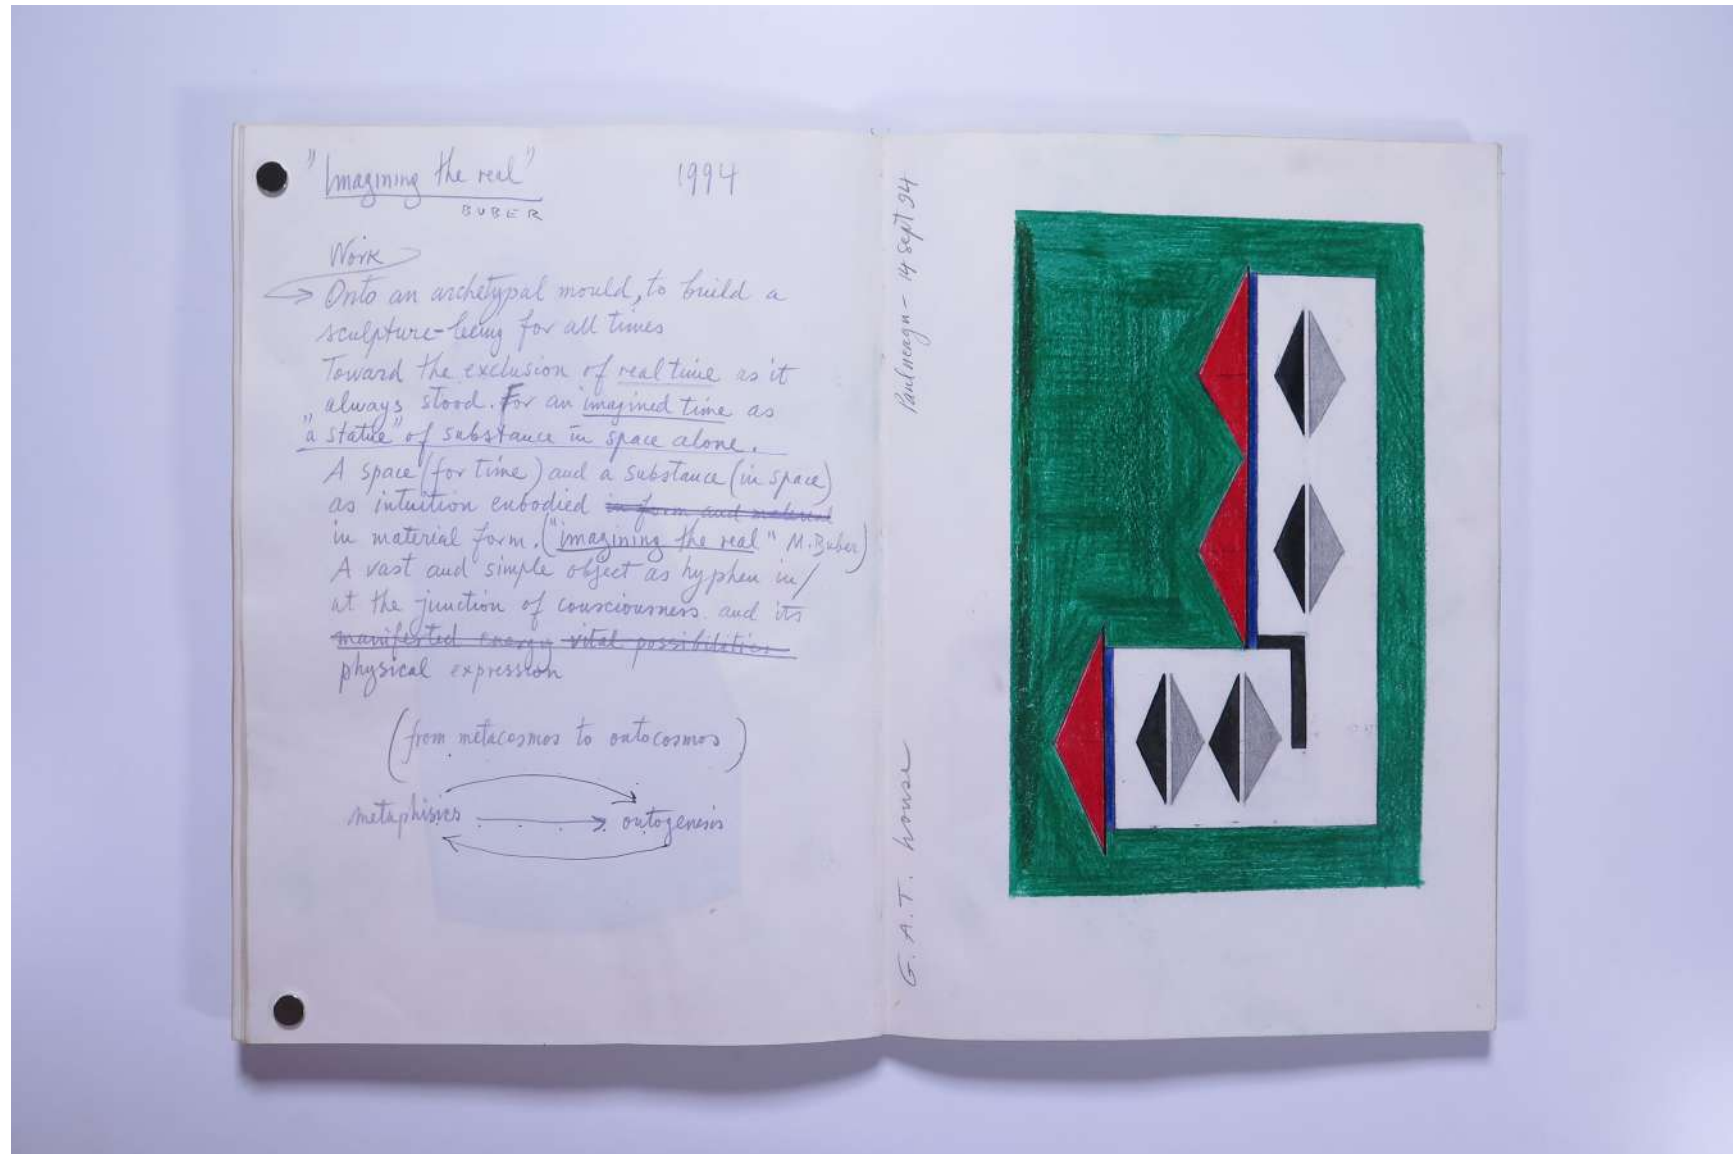 "Imagining the real" 1994
BUBER
Work
Onto an archetypal mould, to build a
sculpture-being for all times
Toward the exclusion of real time as it
always stood. For an imagined time as
"a statue" of substance in space alone.
A space (for time) and a substance (in space)
as intuition enbodied in form and material
in material form. ("imagining the real" M. Buber)
A vast and simple object as hyphen in/
at the junction of consciousness and its
manifested energy vital possibilities
physical expression
(from metacosmos to ontocosmos)
metaphisics ontogenesis
Paul neagu - 14 sept 94
G. A. T. house